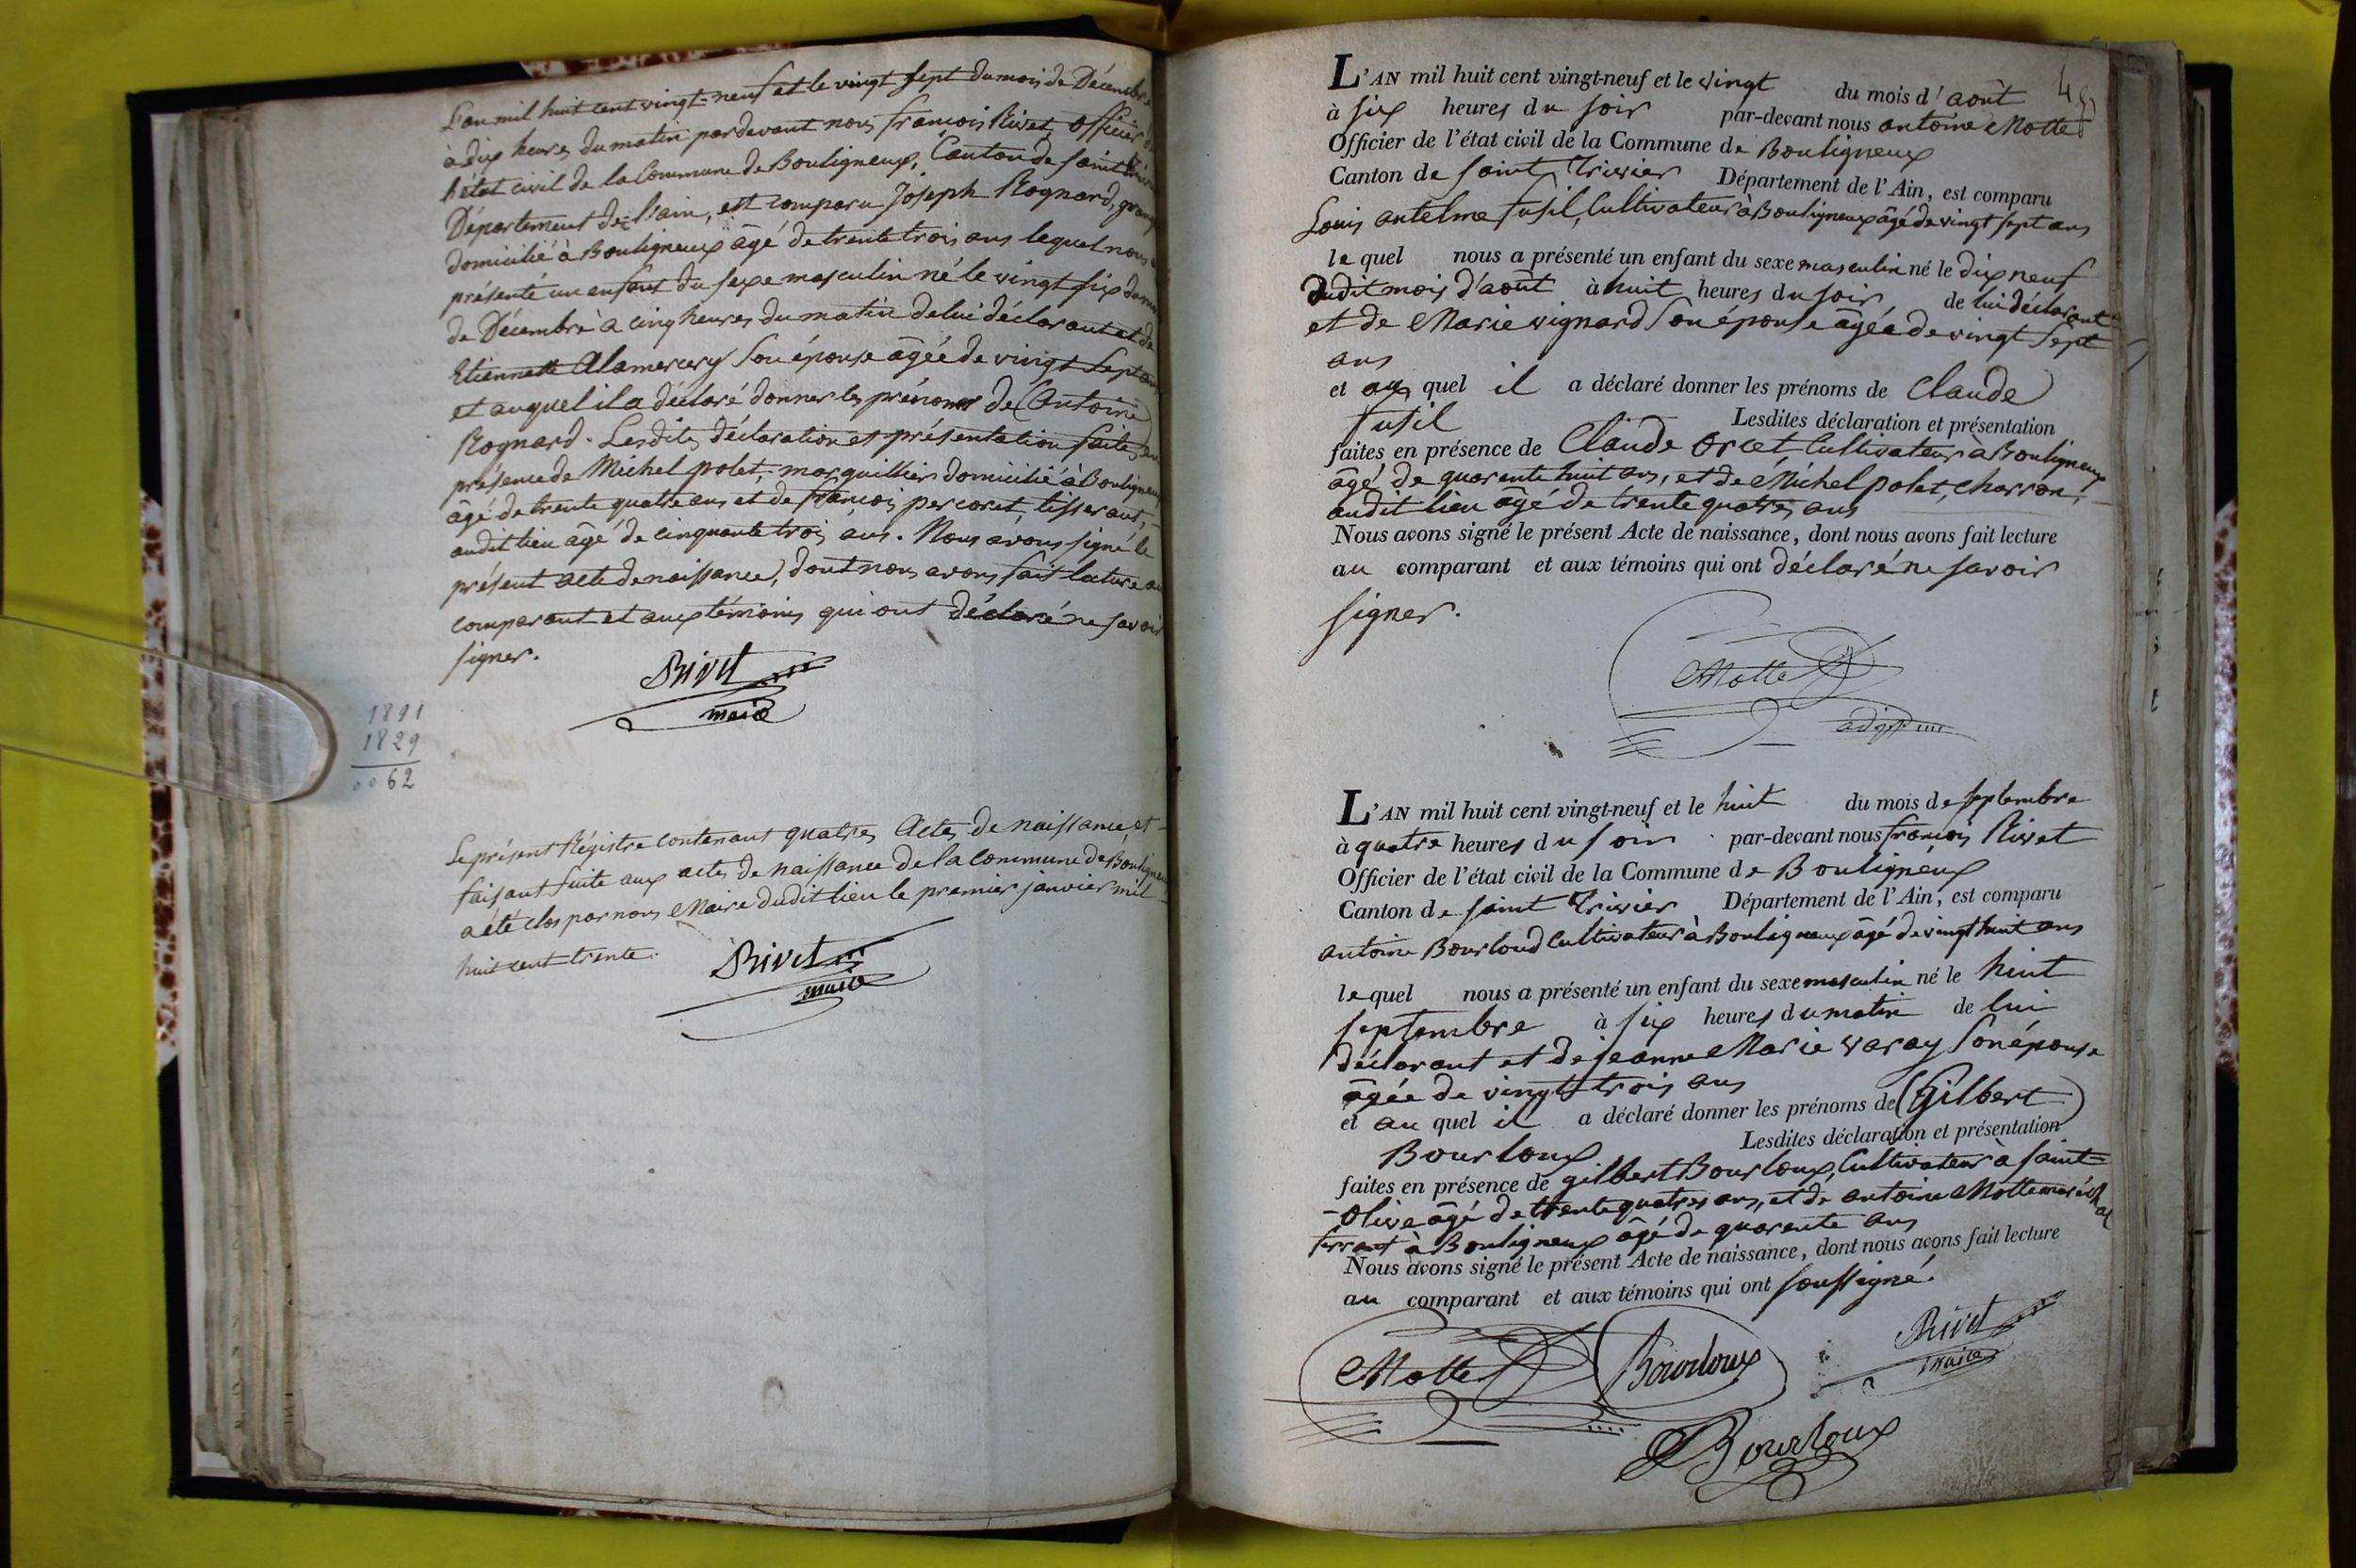 L'an mil huit cent vingt-neuf et le vingt sept du mois de Décembre
à dix heures du matin pardevant nous françois Rivet, officier de
l'état civil de la Commune de Bouligneux, Canton de saint
Département de l'ain, est comparu Joseph Rognard,
domicilié à Bouligneux âgé de trente trois ans lequel nous a
présenté un enfant du sexe masculin né le vingt six du mois
de Décembre à cinq heures du matin de lui déclarant et de
Etiennette Alamercery son épouse âgée de vingt Sept ans
et auquel il a déclaré donner les prénoms de (Antoine)
Rognard. Lesdites déclaration et présentation faites en
présence de Michel polet, marguillier domicilié à Bouligneux
âgé de trente quatre ans et de françois percoret, tisserant,
audit lieu âgé de cinquante trois ans. Nous avons signé le
présent acte de naissance, dont nous avons fait lecture au
comparant et aux témoins qui ont déclaré ne savoir
signer.
Rivet
maire
1891
1829
0062
Le présent Régistre contenant quatre Actes de naissance, et
faisant suite aux actes de naissance de la Commune de Bouligneux
a été clos par nous Maire dudit lieu le premier janvier mil
huit cent trente.
Rivet
maire
L'AN mil huit cent vingt-neuf et le vingt du mois d'août
à six heures du soir par-devant nous antoine Motte
Officier de l'état civil de la Commune de Bouligneux
Canton de saint Trivier Département de l'Ain, est comparu
Louis antelme fusil, Cultivateur à Bouligneux âgé de vingt sept ans
lequel nous a présenté un enfant du sexe masculin né le dix neuf
dudit mois d'août à huit heures du soir, de lui déclarant
et de Marie vignard son épouse âgée de vingt sept
ans
et au quel il a déclaré donner les prénoms de Claude
fusil Lesdites déclaration et présentation
faites en présence de Claude Orcet, Cultivateur à Bouligneux
âgé de quarente huit ans, et de Michel polet, charron,
audit lieu âgé de trente quatre ans
Nous avons signé le présent Acte de naissance, dont nous avons fait lecture
au comparant et aux témoins qui ont déclaré ne savoir
signer.
Motte
adjoint
L'AN mil huit cent vingt-neuf et le huit du mois de septembre
à quatre heures du soir par-devant nous françois Rivet
Officier de l'état civil de la Commune de Bouligneux
Canton de saint Trivier Département de l'Ain, est comparu
antoine Bourloud Cultivateur à Bouligneux âgé de vingt huit ans
lequel nous a présenté un enfant du sexe masculin né le huit
septembre à six heures du matin de lui
déclarant et de jeanne Marie varay son épouse
âgée de vingt trois ans
et au quel il a déclaré donner les prénoms de (Gilbert)
Bourloux Lesdites déclaration et présentation
faites en présence de gilbert Bourloux, Cultivateur à saint-
-Olive âgé de trente quatre ans, et de antoine Motte maréchal
ferrant à Bouligneux âgé de quarente ans
Nous avons signé le présent Acte de naissance, dont nous avons fait lecture
au comparant et aux témoins qui ont soussigné.
Motte Bourloux Rivet
maire
Bourloux